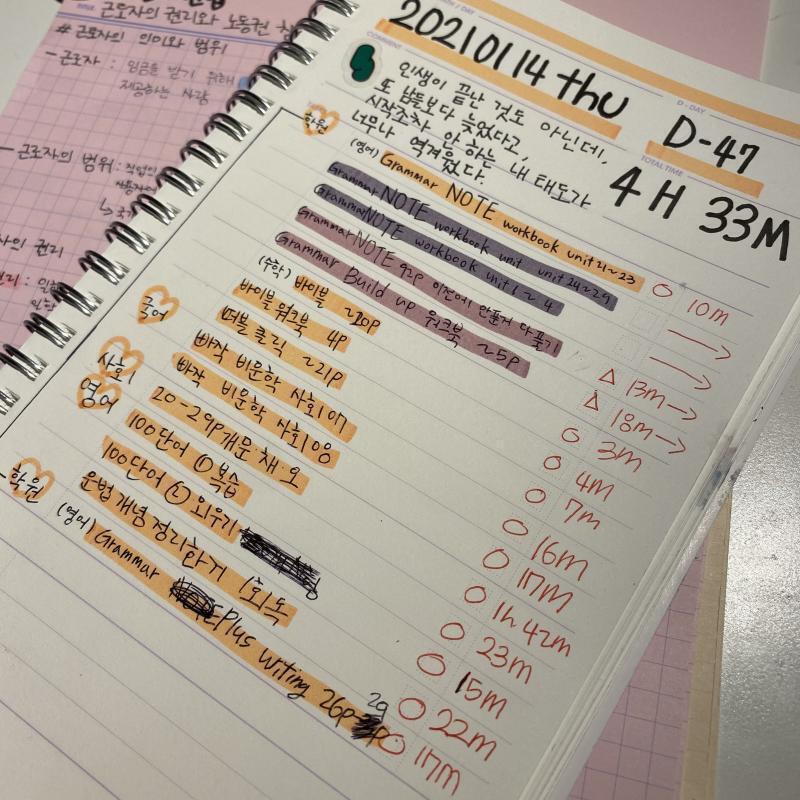 근로자의 권리와 노동권
# 근로자의 의미와 범위
- 근로자 : 임금을 받기 위해
제공하는 사람
- 근로자의 범위 :
20210114 thu
COMMENT
D-DAY
D-47
TOTAL TIME
4H 33M
인생이 끝난 것도 아닌데,
또 남들보다 늦었다고,
시작조차 안 하는 내 태도가
너무나 역겨웠다.
학원
(영어) Grammar NOTE workbook unit 21~23 ○ 10m
Grammar NOTE workbook unit 24~29 →
Grammar NOTE workbook unit 1~4 →
Grammar NOTE 92p 이전에 안푼거 다풀기 △ 13m→
Grammar Build up 워크북 ~5p △ 18m→
(수학) 바이블 ~20p ○ 3m
바이블 워크북 4p ○ 4m
국어 떠블 클릭 ~21p ○ 7m
빠작 비문학 사회 07 ○ 16m
빠작 비문학 사회 08 ○ 17m
사회 20-29p 개문·채·오 ○ 1h 42m
영어 100단어 ① 복습 ○ 23m
100단어 ② 외우기 ○ 15m
문법 개념 정리한거 1회독 ○ 22m
학원 (영어) Grammar Plus Writing 26p-29 ○ 17m